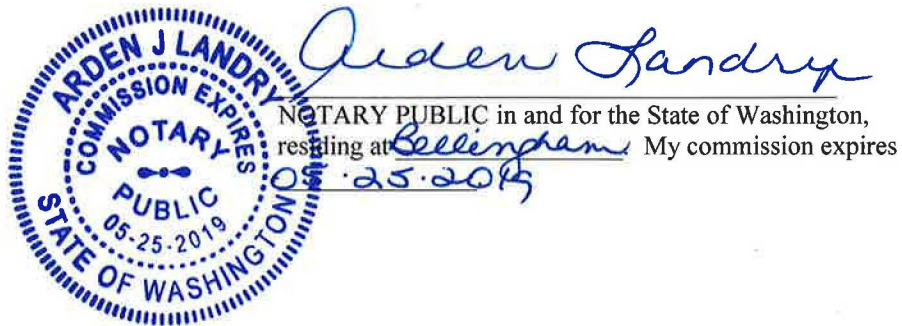 ARDEN J LANDRY
COMMISSION EXPIRES
NOTARY
PUBLIC
05-25-2019
STATE OF WASHINGTON
Arden Landry
NOTARY PUBLIC in and for the State of Washington,
residing at Bellingham. My commission expires
05.25.2019